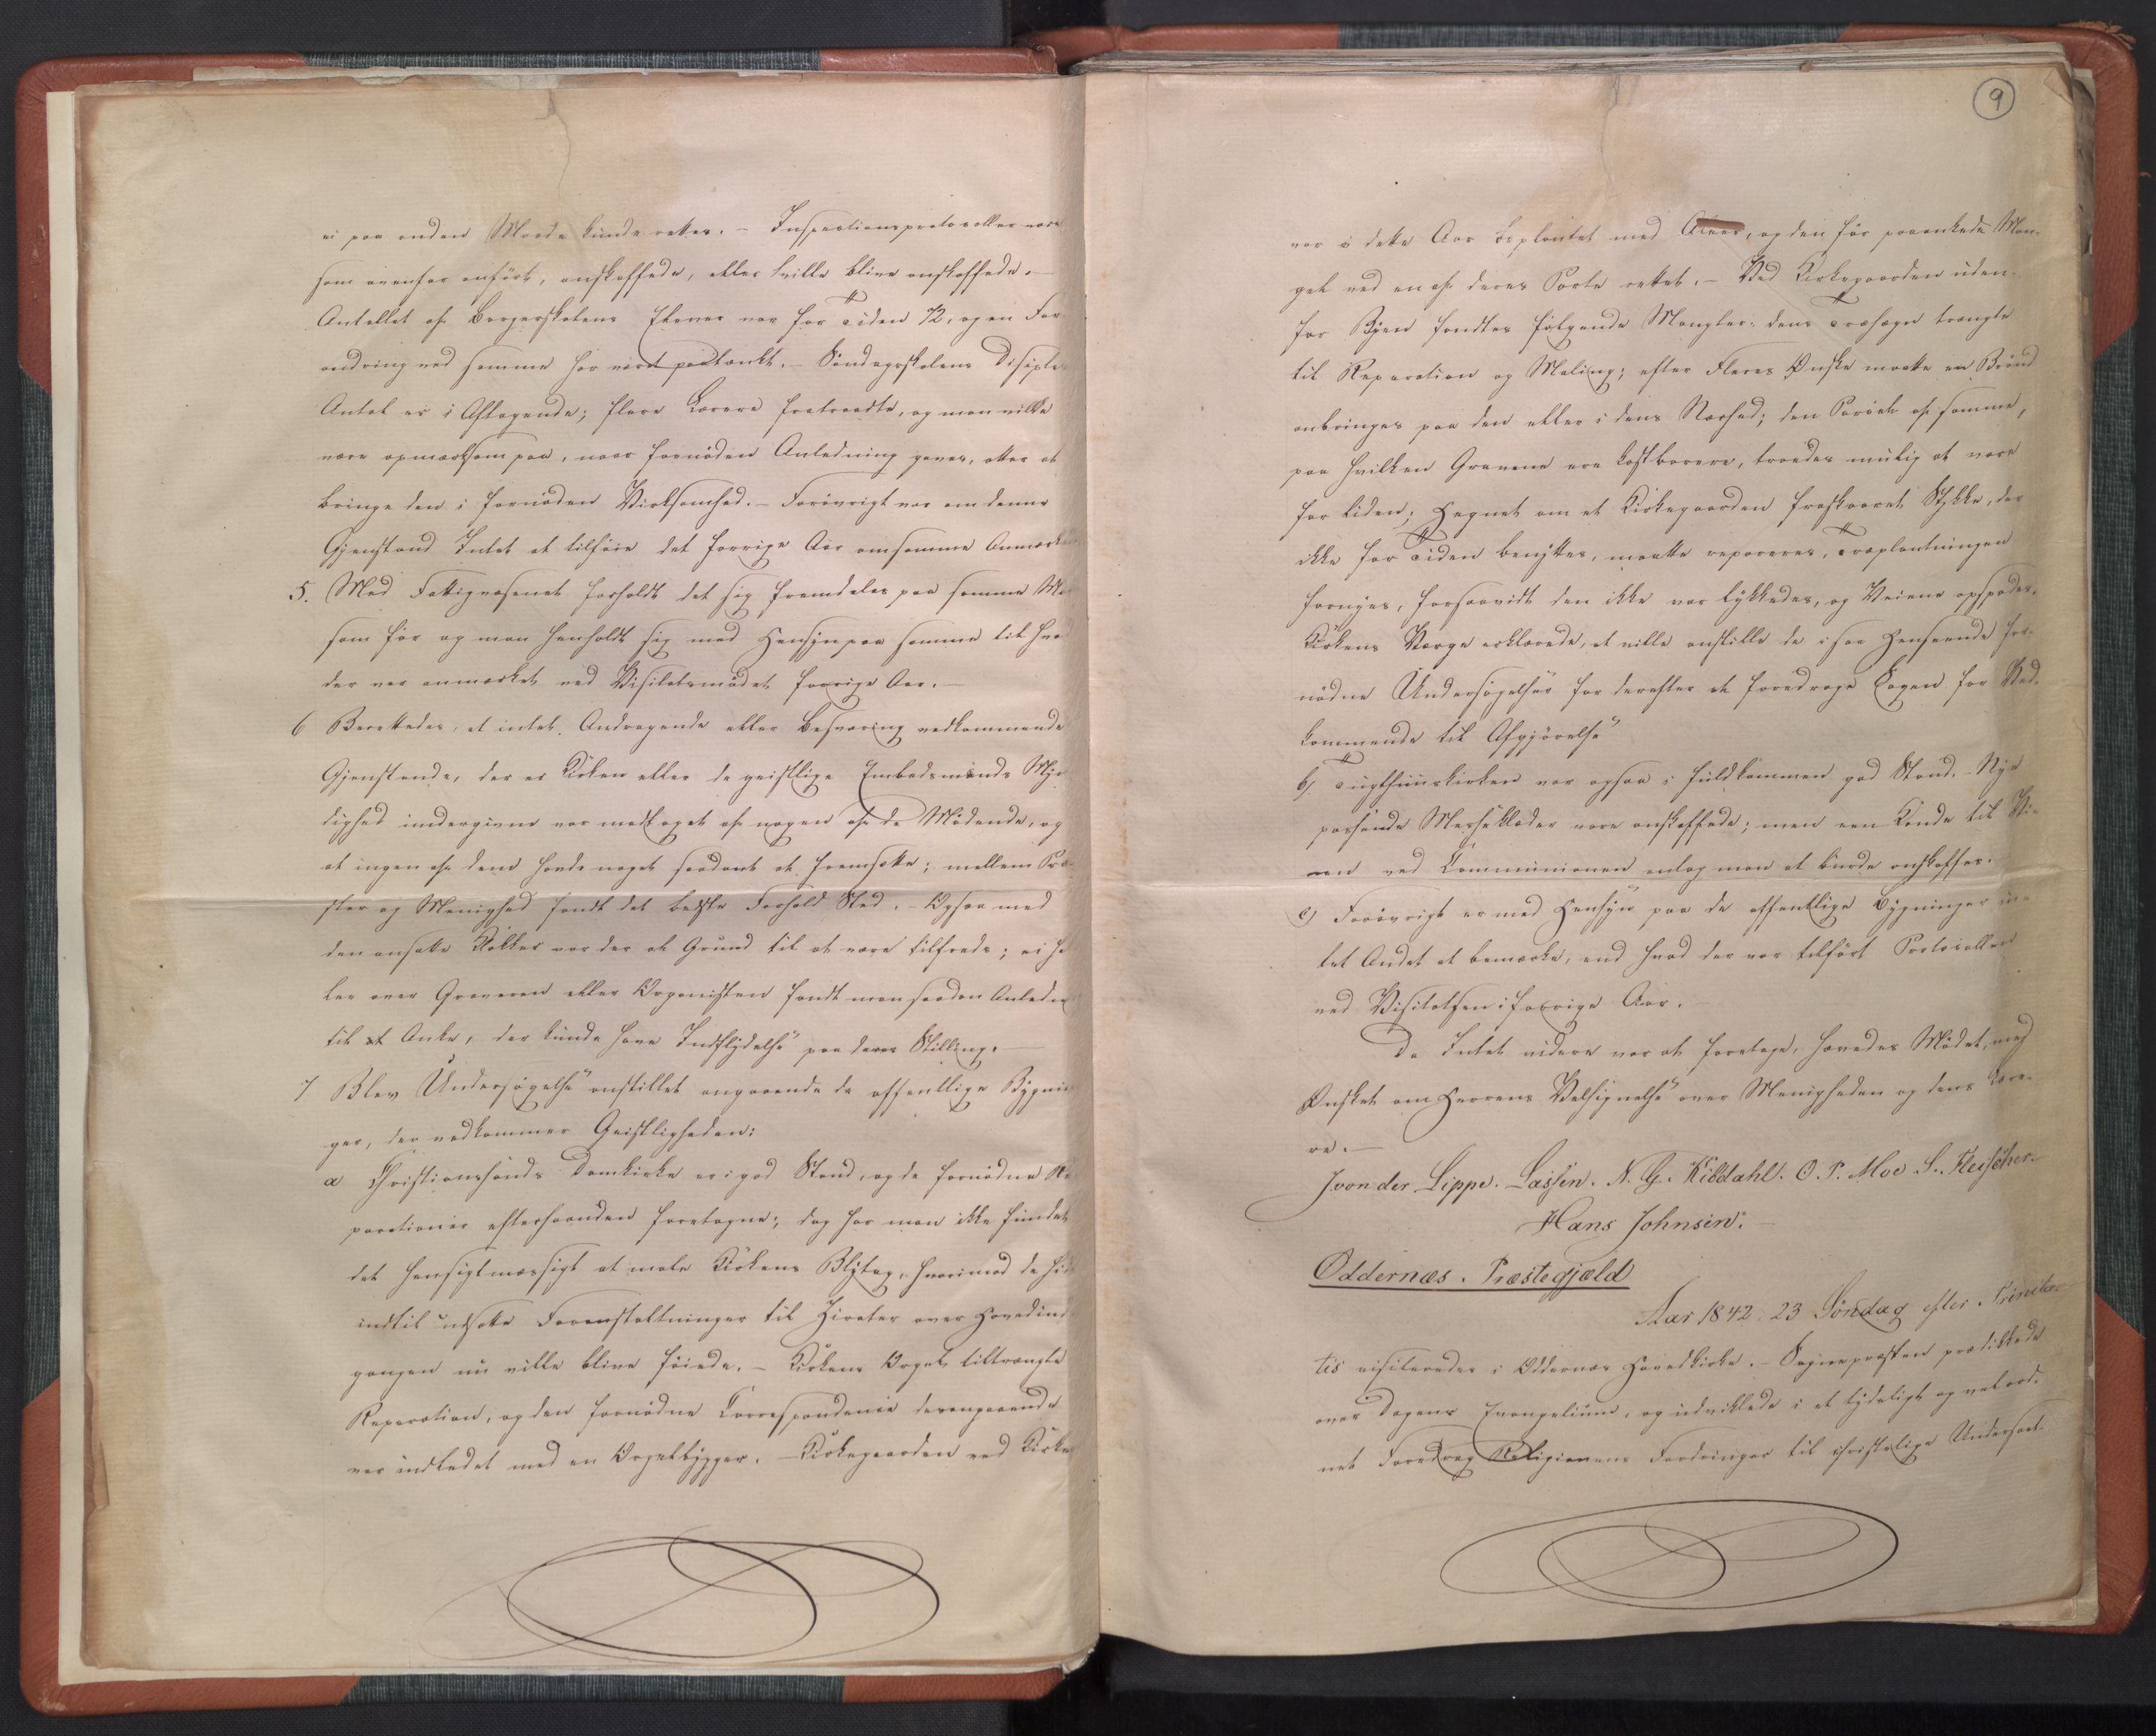 ei paa anden Maade kunde rettes. – Inspectionsprotocoller vare
som ovenfor anført, anskaffede, eller skulle blive anskaffede. –
Antallet af Borgerskolens Elever var for Tiden 72, og en For-
andring ved samme har været paatænkt. – Søndagsskolens Disciple-
Antal er i Aftagende; flere Lærere fratraadte, og man vilde
være opmærksom paa, naar fornøden Anledning gaves, atter at
bringe den i fornøden Virksomhed. – Forøvrigt var om denne
Gjenstand Intet at tilføie det forrige Aar om samme Anmærke
5. Med Fattigvæsenet forholdt det sig fremdeles paa samme Ma
som før og man henholdt sig med Hensyn paa samme til hva
der var anmærket ved Visitatsmødet forrige Aar. –
6 Berettedes, at intet Andragende eller Besværing vedkommende
Gjenstande, der er Kirken eller de geistlige Embedsmænds Myn
dighed undergivne var modtaget af nogen af de Mødende, og
at ingen af dem havde noget saadant at fremsætte; mellem Præ-
ster og Menighed fandt det bedste Forhold Sted. – Ogsaa med
den ansatte Klokker var der al Grund til at være tilfreds; ei he
ler over Graveren eller Organisten fandt man saadan Anledn
til at Anke, der kunde have Indflydelse paa deres Stilling. –
7 Blev Undersøgelse anstillet angaaende de offentlige Bygnin
ger, der vedkommer Geistligheden:
a Christiansands Domkirke er i god Stand, og de fornødne Re
parationer efterhaanden foretagne; dog har man ikke fundet
det hensigtmæssigt at male Kirkens Blytag, hvorimod de hid
indtil udsatte Foranstaltninger til Zirater over Hovedind
gangen nu ville blive føiede. – Kirkens Orgel tiltrængte
Reparation, og den fornødne Correspondence derangaaende
var indledet med en Orgelbygger. – Kirkegaarden ved Kirke
9
var i dette Aar beplantet med , og den før paaankede Man-
gel ved en af deres Porte rettet. – Ved Kirkegaarden uden-
for Byen fandtes følgende Mangler: dens Træhegn trængte
til Reparation og Maling; efter Fleres Ønske maatte en Brønd
anbringes paa den eller i dens Nærhed; den Part af samme,
paa hvilken Gravene ere kostbarere, troedes mulig at være
for liden; Hegnet om et Kirkegaarden fraskaaret Stykke, der
ikke for Tiden benyttes, maatte repareres, Træplantningen
fornyes, forsaavidt den ikke var lykkedes, og Veiene opspades.
Kirkens Værge erklærede, at ville anstille de i saa Henseende for-
nødne Undersøgelser for derefter at foredrage Sagen for Ved-
kommende til Afgjørelse
b) Tugthuuskirken var ogsaa i fuldkommen god Stand. – Nye
passende Messeklæder vare anskaffede; men een Kande til Vi-
nen ved Communionen ansaa man at burde anskaffes.
c) Forøvrigt er med Hensyn paa de offentlige Bygninger in-
tet Andet at bemærke, end hvad der var tilført Protocollen
ved Visitatsen i forrige Aar. –
Da Intet videre var at foretage, hævedes Mødet, med
Ønsket om Herrens Velsignelse over Menigheden og dens Lære-
re. –
J von der Lippe. Lassen. N. G. Kilddahl. O. P. Moe. S. Fleischer.
Hans Johnsen. –
Oddernæs. Præstegjæld
Aar 1842. 23 Söndag efter Trinita-
tis visiteredes i Oddernæs Hovedkirke. – Sognepræsten prædikkede
over Dagens Evangelium, og udviklede i et tydeligt og velord-
net Foredrag Religionens Fordringer til christelige Undersaat-